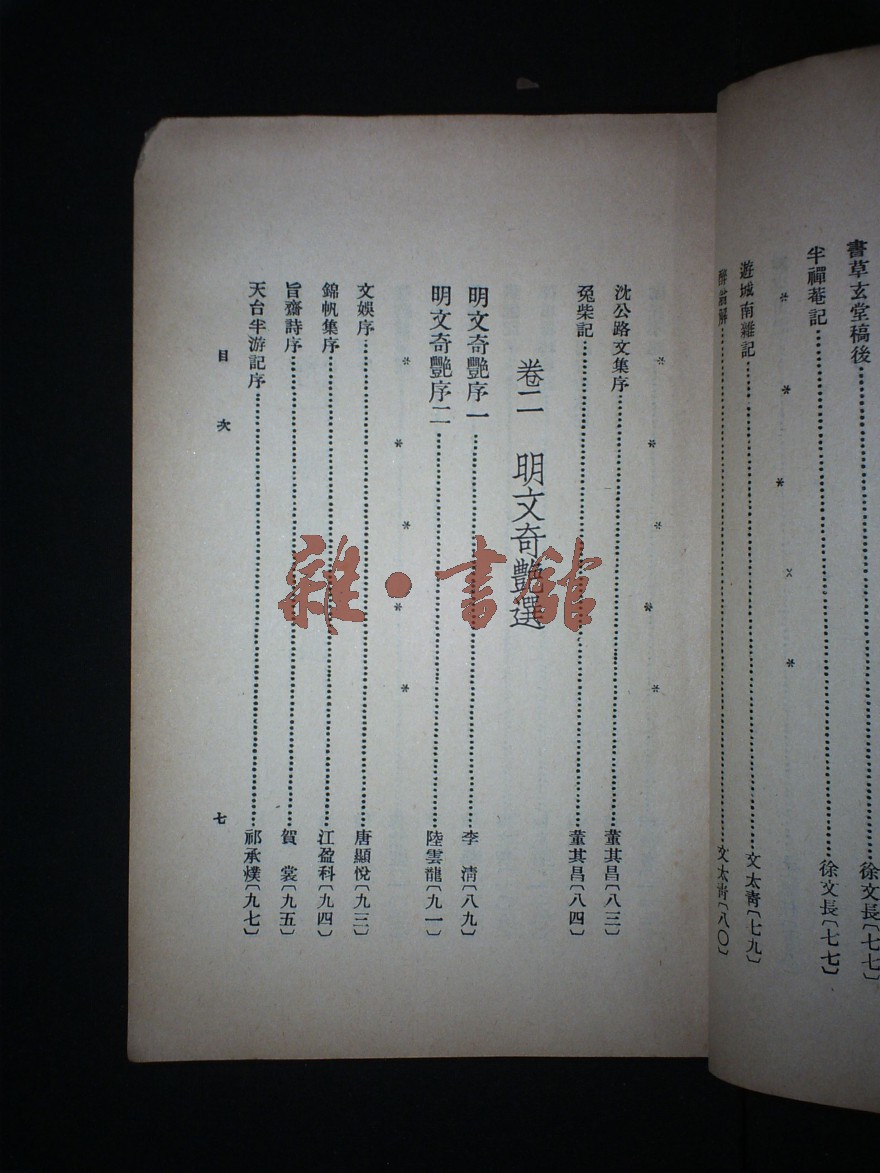 書草玄堂稿後 徐文長〔七七〕
半禪菴記 徐文長〔七七〕
遊城南雜記 文太靑〔七九〕
醉翁解 文太靑〔八〇〕
沈公路文集序 董其昌〔八三〕
兎柴記 董其昌〔八四〕
卷二 明文奇艷選
明文奇艷序一 李 清〔八九〕
明文奇艷序二 陸雲龍〔九一〕
文娛序 唐顯悅〔九三〕
錦帆集序 江盈科〔九四〕
旨齋詩序 賀 裳〔九五〕
天台半游記序 祁承㸁〔九七〕
目 次 七
雜·書館